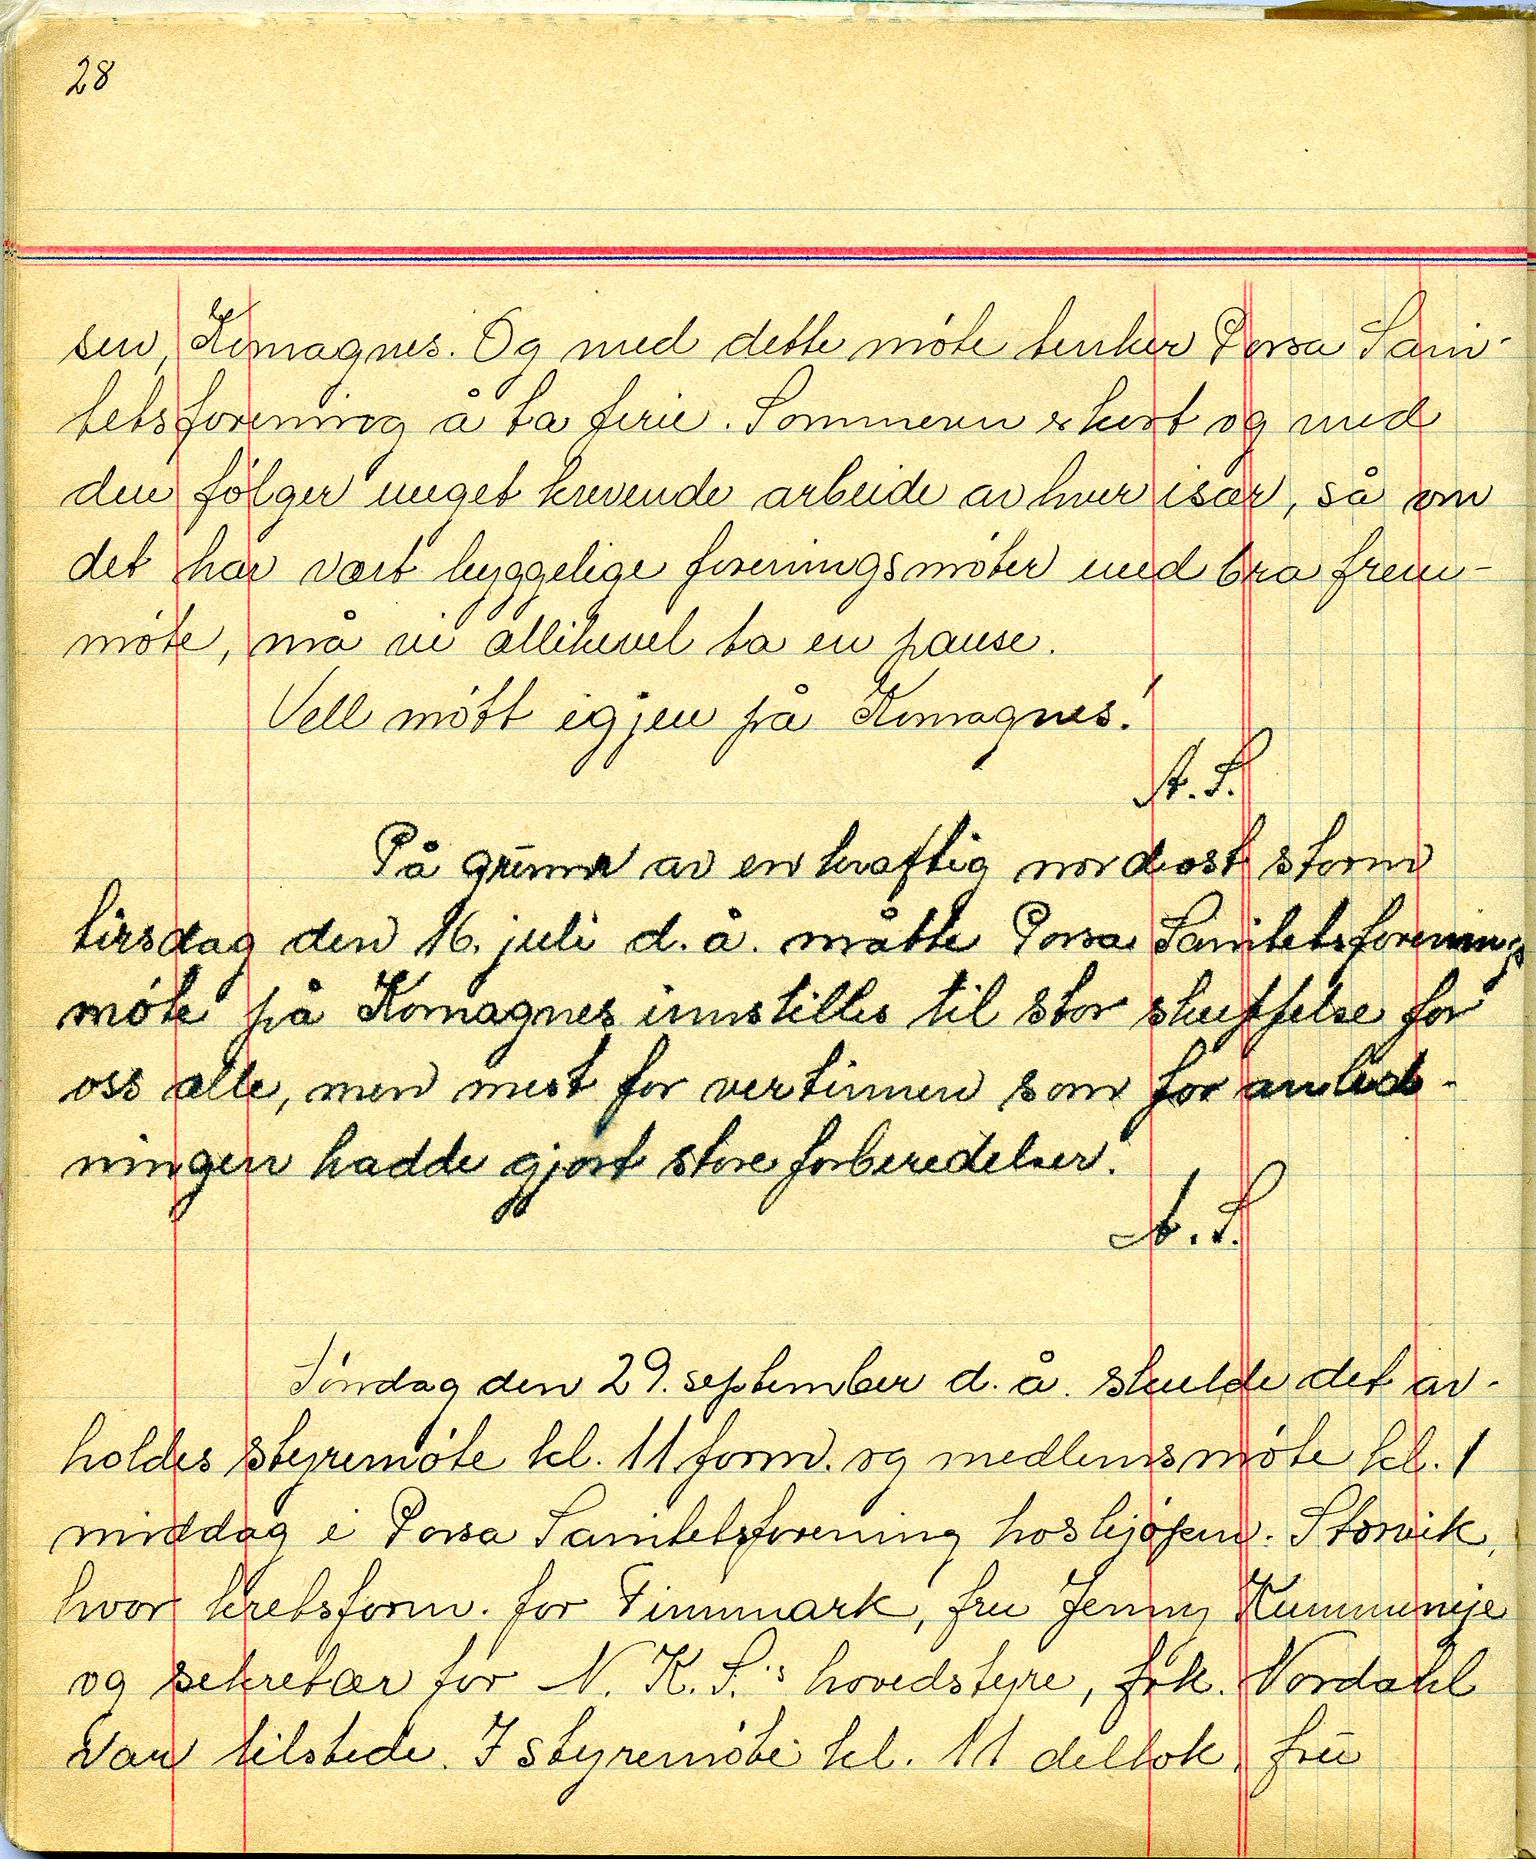 28
sen, Komagnes. Og med dette møte tenker Porsa Sani-
tetsforening å ta ferie. Sommeren er kort og med
den følger meget krevende arbeide av hver især, så om
det har vært hyggelige foreningsmøter med bra frem-
møte, må vi allikevel ta en pause.
Vell møtt igjen på Komagnes!
A. S.
På grunn av en kraftig nordost storm
tirsdag den 16. juli d. å. måtte Porsa Sanitetsforenings
møte på Komagnes innstilles til stor skuffelse for
oss alle, men mest for vertinnen som for anled-
ningen hadde gjort store forberedelser.
A. S.
Søndag den 29. september d. å. skulde det av-
holdes styremøte kl. 11 form. og medlemsmøte kl. 1
middag i Porsa Sanitetsforening hos kjøpm. Storvik,
hvor kretsform. for Finnmark, fru Jenny Kummeneje
og sekretær for N. K. S.'s hovedstyre, frk. Nordahl
var tilstede. I styremøte kl. 11 deltok, fru